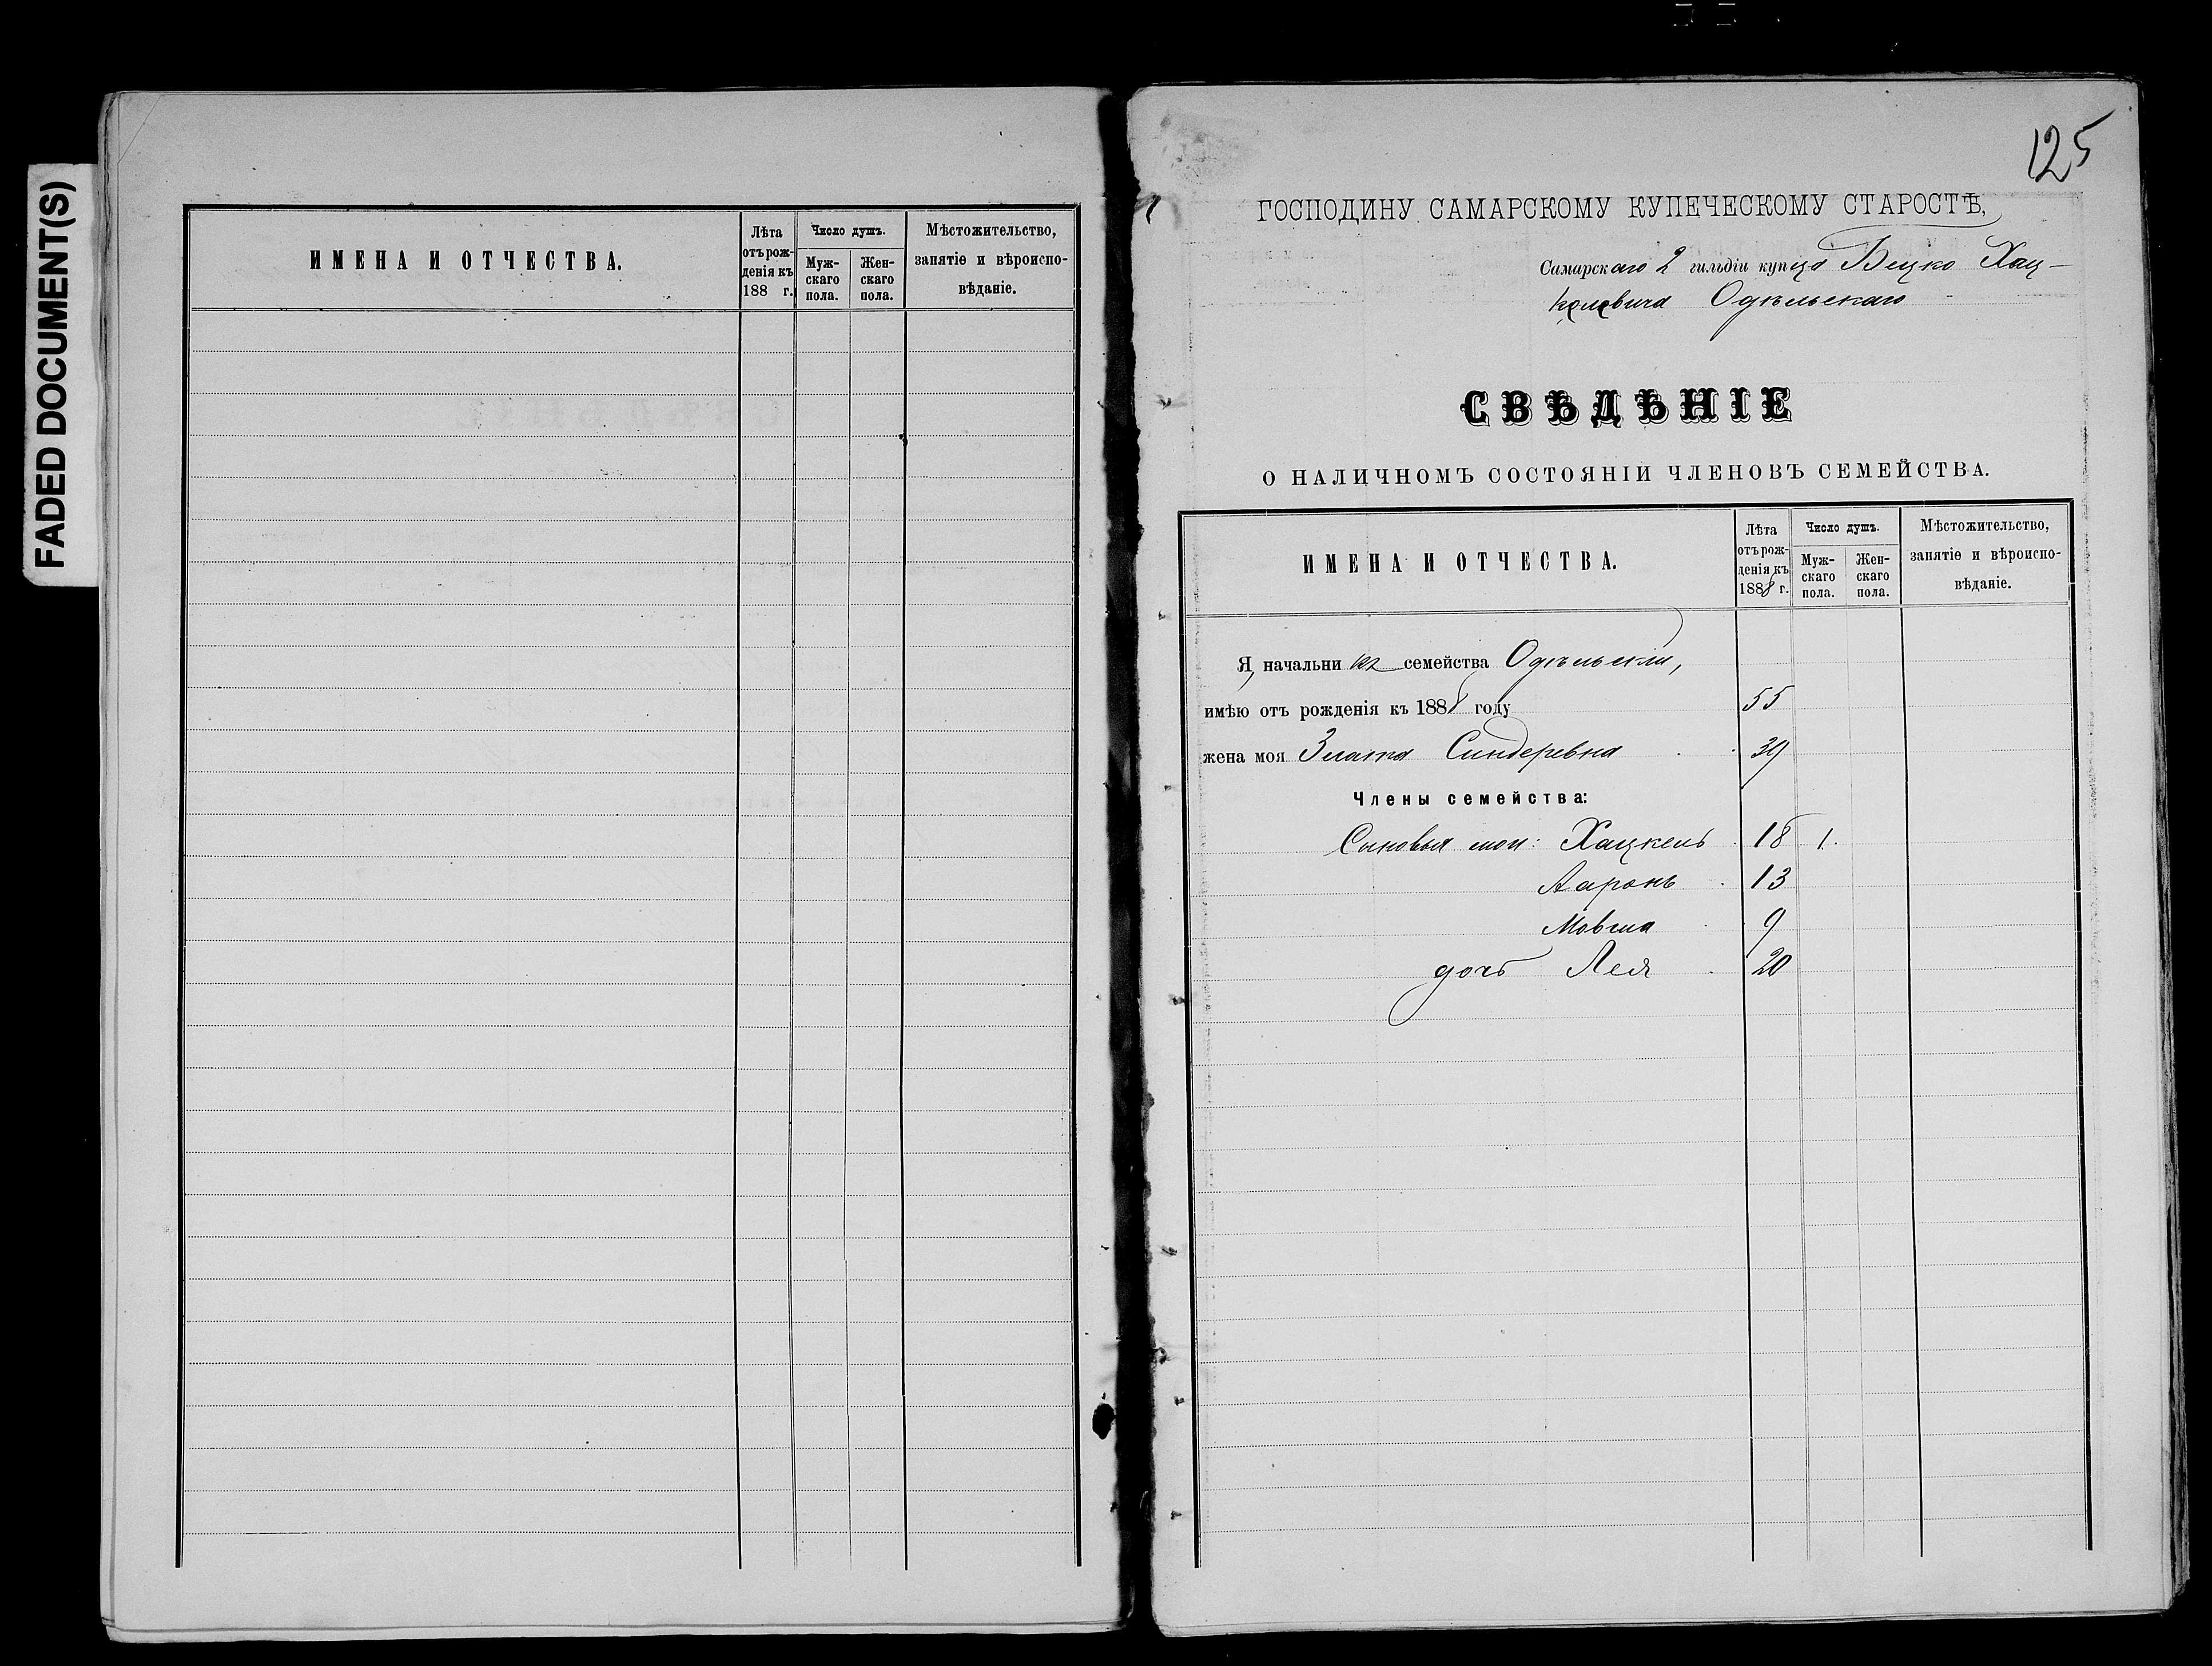 FADED DOCUMENT(S)
ИМЕНА И ОТЧЕСТВА.
Лѣта отъ рож-денія къ 188 г.
Число душъ.
Муж-скаго пола.
Жен-скаго пола.
Мѣстожительство, занятіе и вѣроиспо-вѣданіе.
125
ГОСПОДИНУ САМАРСКОМУ КУПЕЧЕСКОМУ СТАРОСТѢ,
Самарскаго 2 гильдіи купца Бецко Хац-
келевича Одѣльскаго
СВѢДѢНІЕ
О НАЛИЧНОМЪ СОСТОЯНІИ ЧЛЕНОВЪ СЕМЕЙСТВА.
ИМЕНА И ОТЧЕСТВА.
Лѣта отъ рож-денія къ 1888 г.
Число душъ.
Муж-скаго пола.
Жен-скаго пола.
Мѣстожительство, занятіе и вѣроиспо-вѣданіе.
Я, начальникъ семейства Одѣльскій,
имѣю отъ рожденія къ 1888 году 55
жена моя Злата Сендеревна 39
Члены семейства:
Сыновья мои: Хацкель 18 1.
Ааронъ 13
Мовша 9
дочь Лея 20